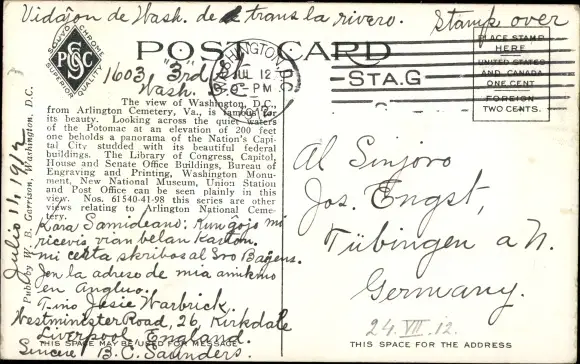 Vidaĵon de Wash. de trans la rivero. Stamp over
SCUVO CHROME
PSC
SUPERIOR QUALITY
POST CARD
1603 "3rd"
Wash.
WASHINGTON, D.C.
JUL 12
-PM
1912
STA. G
PLACE STAMP
HERE
UNITED STATES
AND CANADA
ONE CENT
FOREIGN
TWO CENTS.
The view of Washington, D.C.,
from Arlington Cemetery, Va., is famous for
its beauty. Looking across the quiet waters
of the Potomac at an elevation of 200 feet
one beholds a panorama of the Nation's Capi-
tal City studded with its beautiful federal
buildings. The Library of Congress, Capitol,
House and Senate Office Buildings, Bureau of
Engraving and Printing, Washington Monu-
ment, New National Museum, Union Station
and Post Office can be seen plainly in this
view. Nos. 61540-41-98 this series are other
views relating to Arlington National Ceme-
tery.
Kara Samideano: Kun ĝojo mi
ricevis vian belan karton.
mi certa skribos al Sro
Jen la adreso de mia amikino
en Anglujo.
Fino Josie Warbrick
Westminster Road, 26, Kirkdale
Liverpool, England.
Sincere B. C. Saunders.
THIS SPACE MAY BE USED FOR MESSAGE
Julio 11, 1912
Pub. by W. B. Garrison, Washington, D.C.
Al Sinjoro
Jos. Engst,
Tübingen a N.
Germany.
24. VII. 12.
THIS SPACE FOR THE ADDRESS